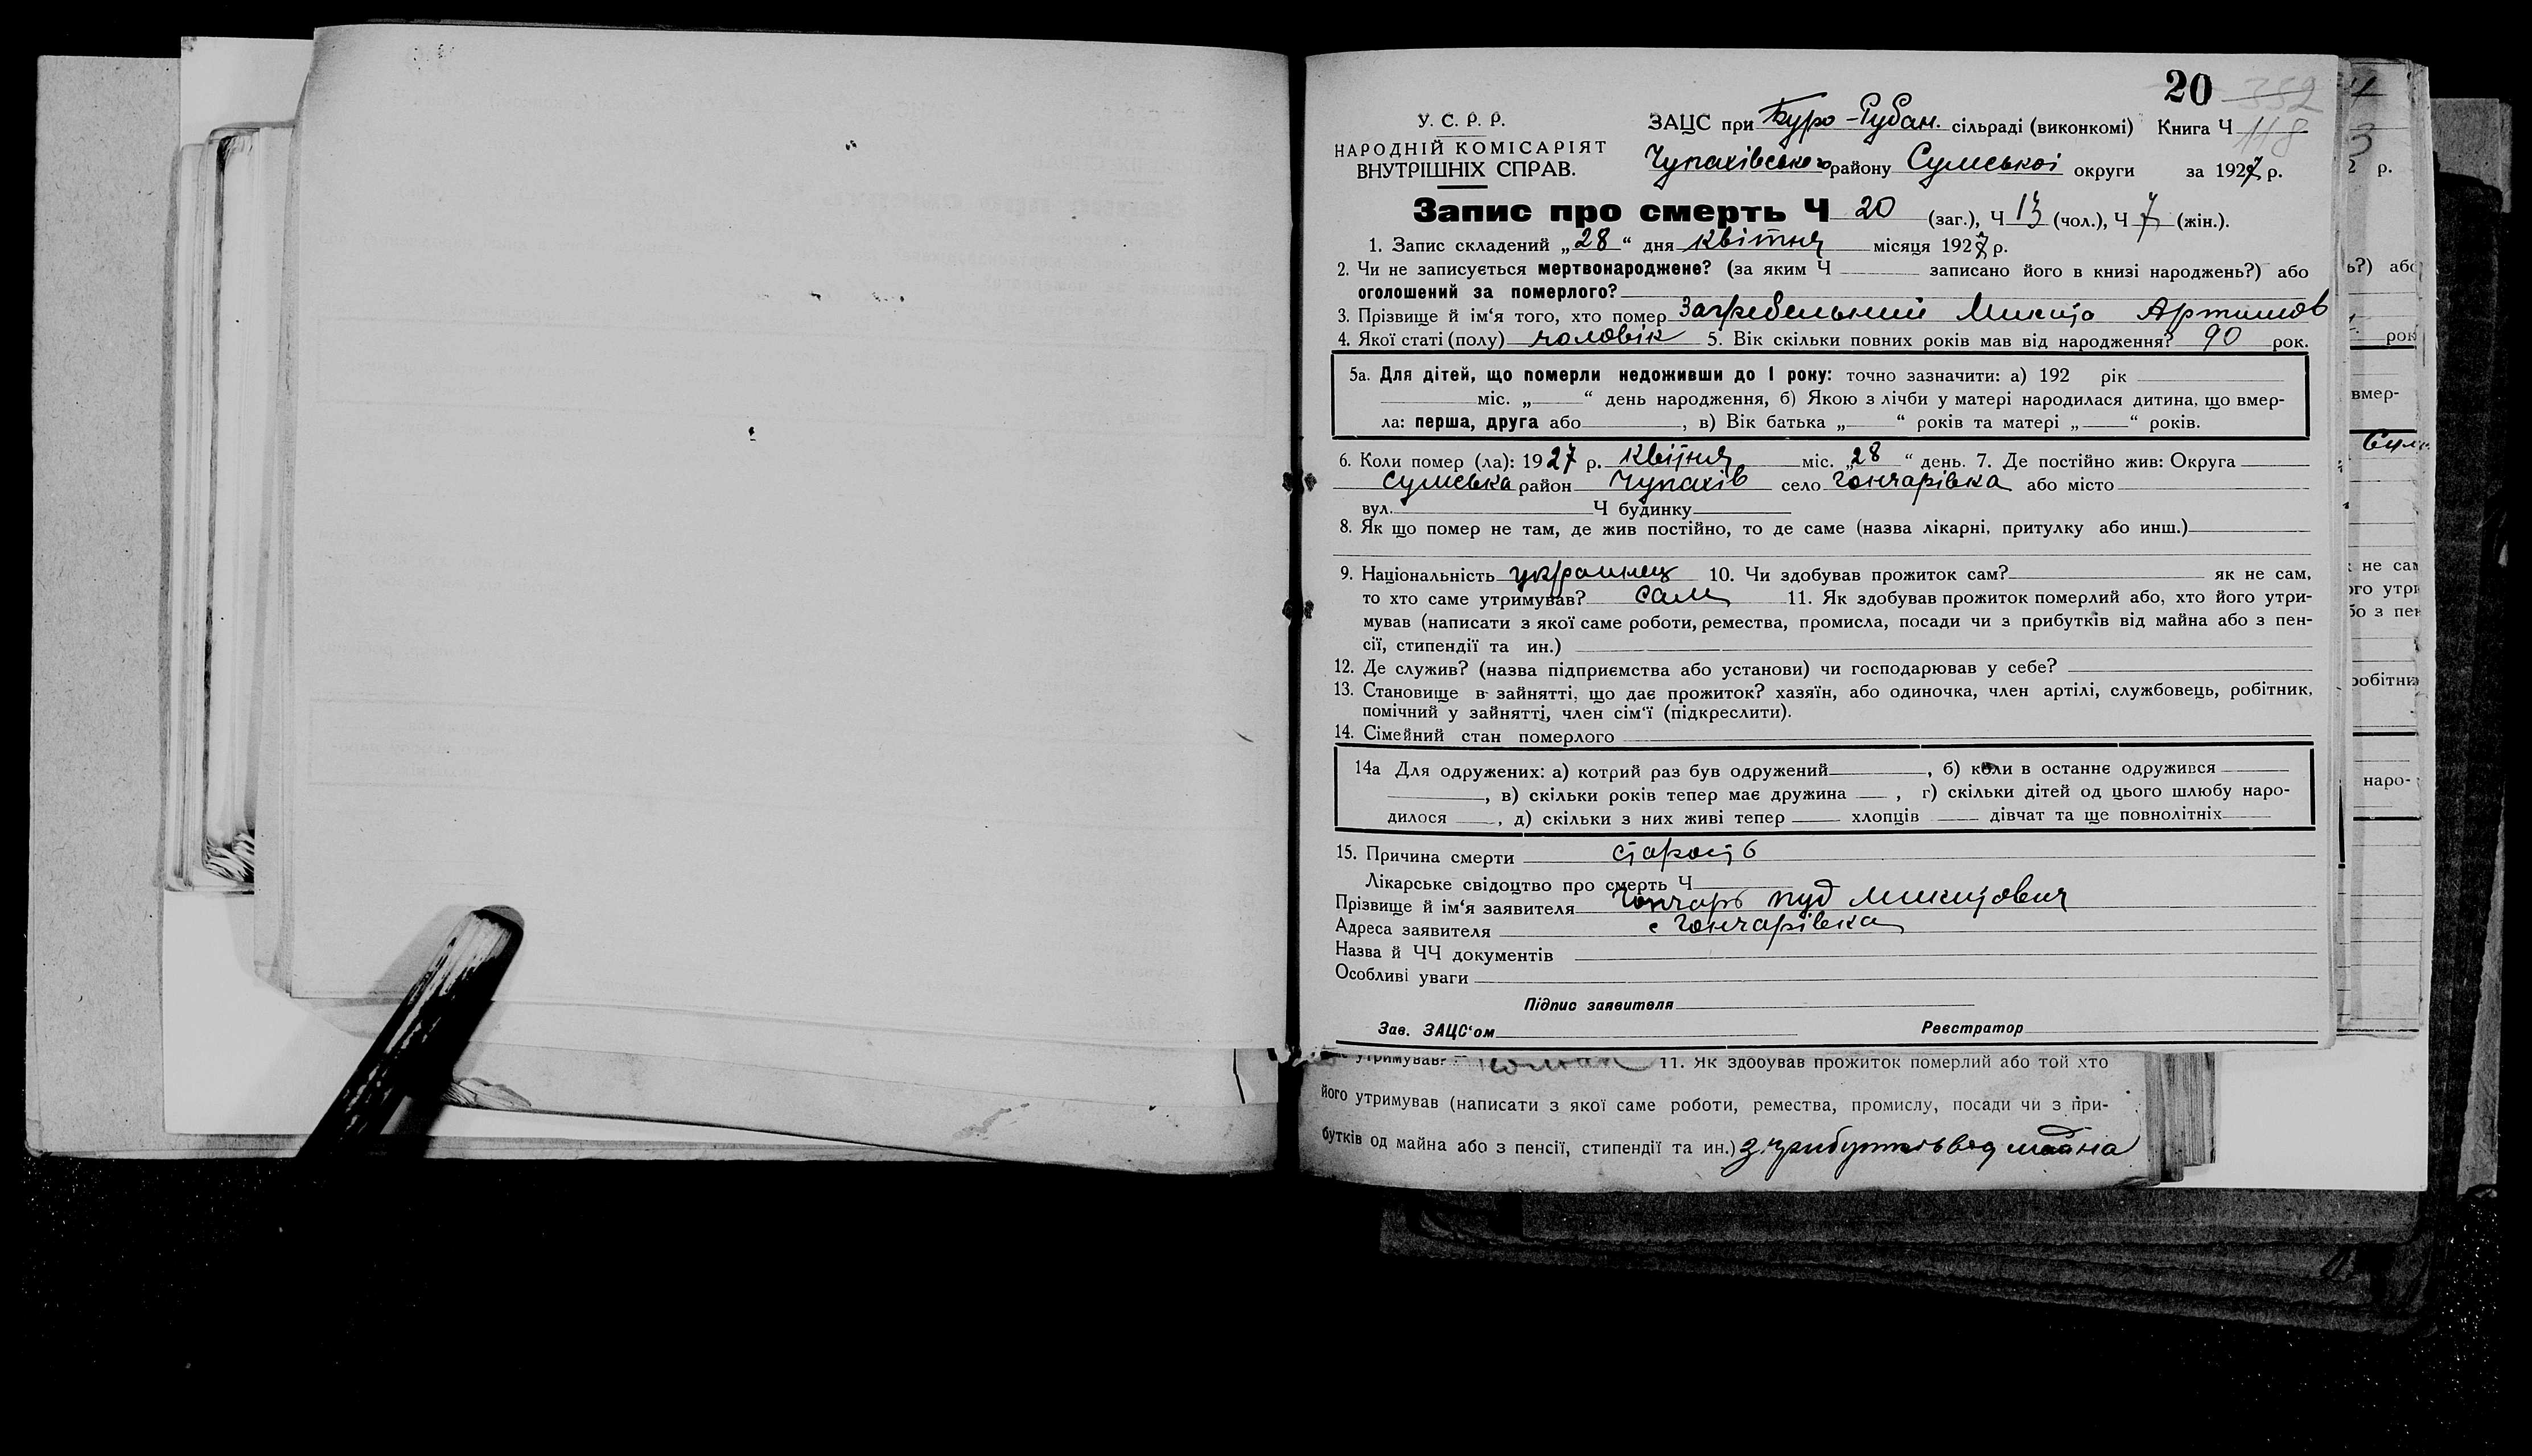 20 352
У. С. Р. Р.
НАРОДНІЙ КОМІСАРІЯТ
ВНУТРІШНІХ СПРАВ.
ЗАЦС при Буро-Рубан. сільраді (виконкомі) Книга Ч 118
Чупахівського району Сумської округи за 1927 р.
Запис про смерть Ч 20 (заг.), Ч 13 (чол.), Ч 7 (жін.).
1. Запис складений „28“ дня квітня місяця 1927 р.
2. Чи не записується мертвонароджене? (за яким Ч записано його в книзі народжень?) або
оголошений за померлого?
3. Прізвище й ім‘я того, хто помер Загребельний Микита Артимов
4. Якої статі (полу) чоловік 5. Вік скільки повних років мав від народження? 90 рок.
5а. Для дітей, що померли недоживши до 1 року: точно зазначити: а) 192 рік
міс. „ “ день народження, б) Якою з лічби у матері народилася дитина, що вмер-
ла: перша, друга або , в) Вік батька „ “ років та матері „ “ років.
6. Коли помер (ла): 1927 р. квітня міс. „28“ день. 7. Де постійно жив: Округа
Сумська район Чупахів село Гончарівка або місто
вул. Ч будинку
8. Як що помер не там, де жив постійно, то де саме (назва лікарні, притулку або инш.)
9. Національність українец 10. Чи здобував прожиток сам? як не сам,
то хто саме утримував? сам 11. Як здобував прожиток померлий або, хто його утри-
мував (написати з якої саме роботи, ремества, промисла, посади чи з прибутків від майна або з пен-
сії, стипендії та ин.)
12. Де служив? (назва підприємства або установи) чи господарював у себе?
13. Становище в зайнятті, що дає прожиток? хазяїн, або одиночка, член артілі, службовець, робітник,
помічний у зайнятті, член сім‘ї (підкреслити).
14. Сімейний стан померлого
14а Для одружених: а) котрий раз був одружений , б) коли в останнє одружився
, в) скільки років тепер має дружина , г) скільки дітей од цього шлюбу наро-
дилося , д) скільки з них живі тепер хлопців дівчат та ще повнолітніх
15. Причина смерти старость
Лікарське свідоцтво про смерть Ч
Прізвище й ім‘я заявителя Гончарь пуд Микитович
Адреса заявителя с Гончарівка
Назва й ЧЧ документів
Особливі уваги
Підпис заявителя
Зав. ЗАЦС‘ом Реєстратор
утримував? 11. Як здобував прожиток померлий або той хто
його утримував (написати з якої саме роботи, ремества, промислу, посади чи з при-
бутків од майна або з пенсії, стипендії та ин.) з прибутків від майна
р.
ь?) або
рок
вмер-
Сум
не сам
ого утри
бо з пен
робітник
наро-